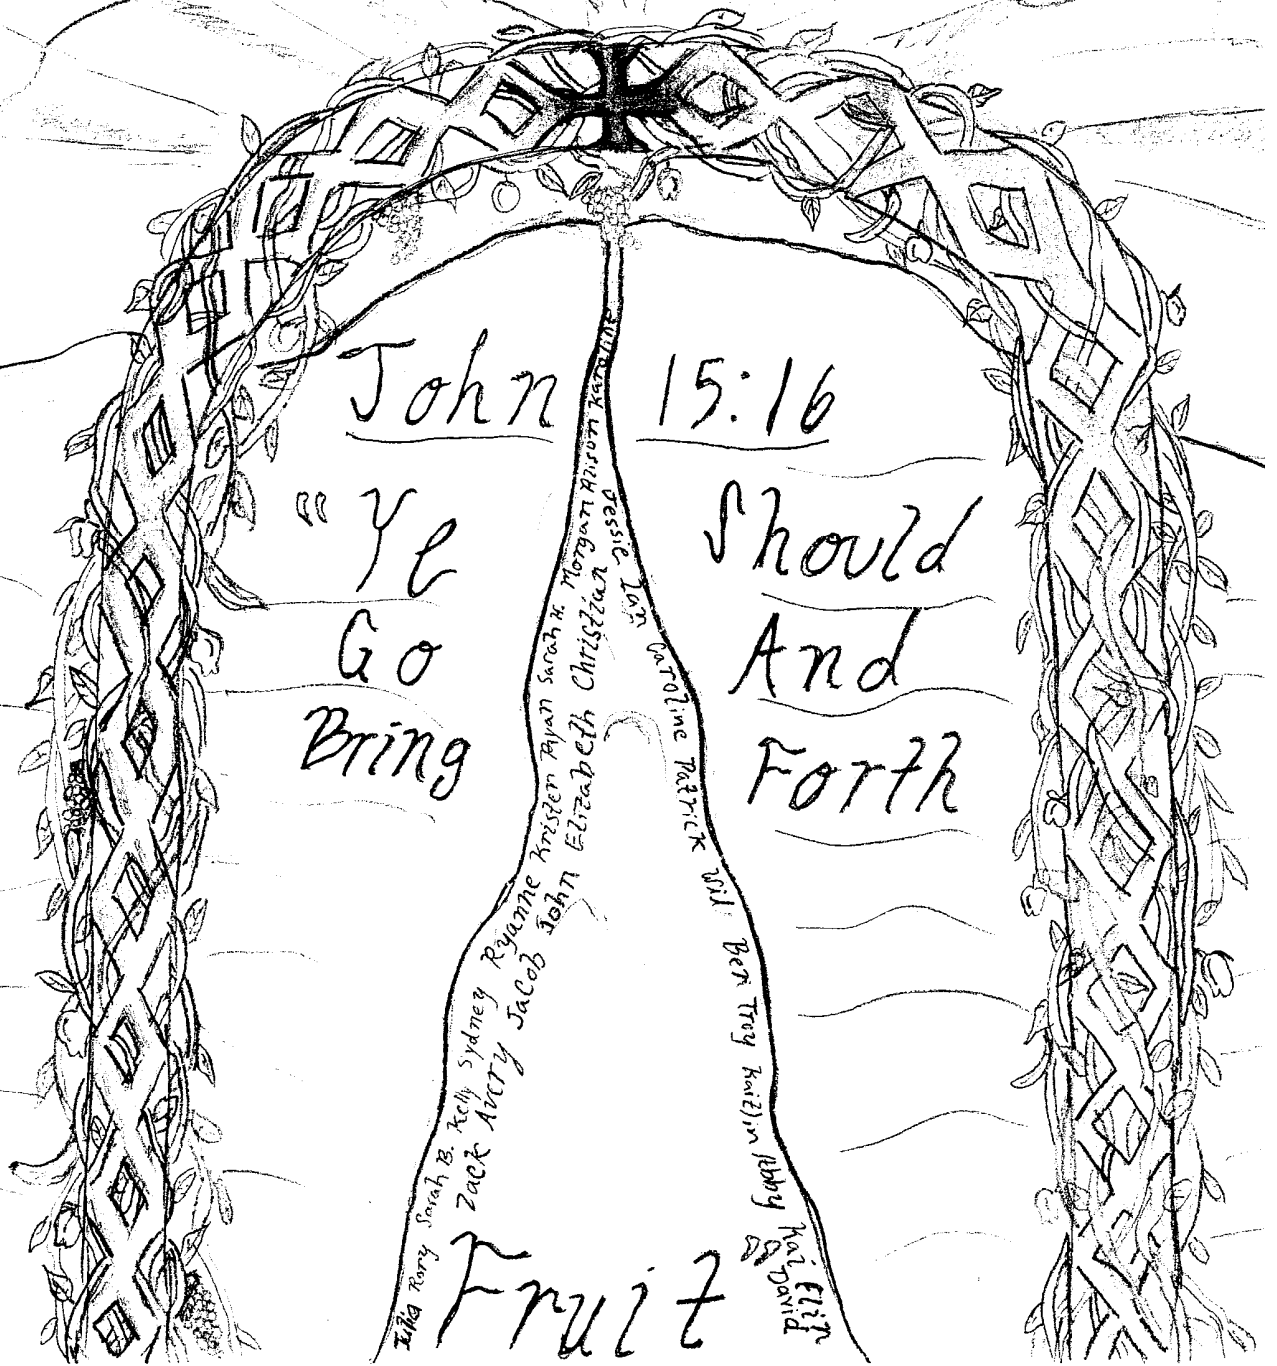 John 15:16
"Ye Should
Go And
Bring Forth
Fruit
Julia Rory Sarah B. Kelly Sydney Ryanne Kristen Ryan Sarah H. Morgan Alison Karoline
Zack Avery Jacob John Elizabeth Christian
Jessie Iain Caroline Patrick Will Ben Troy Kaitlin Abby Kai
David